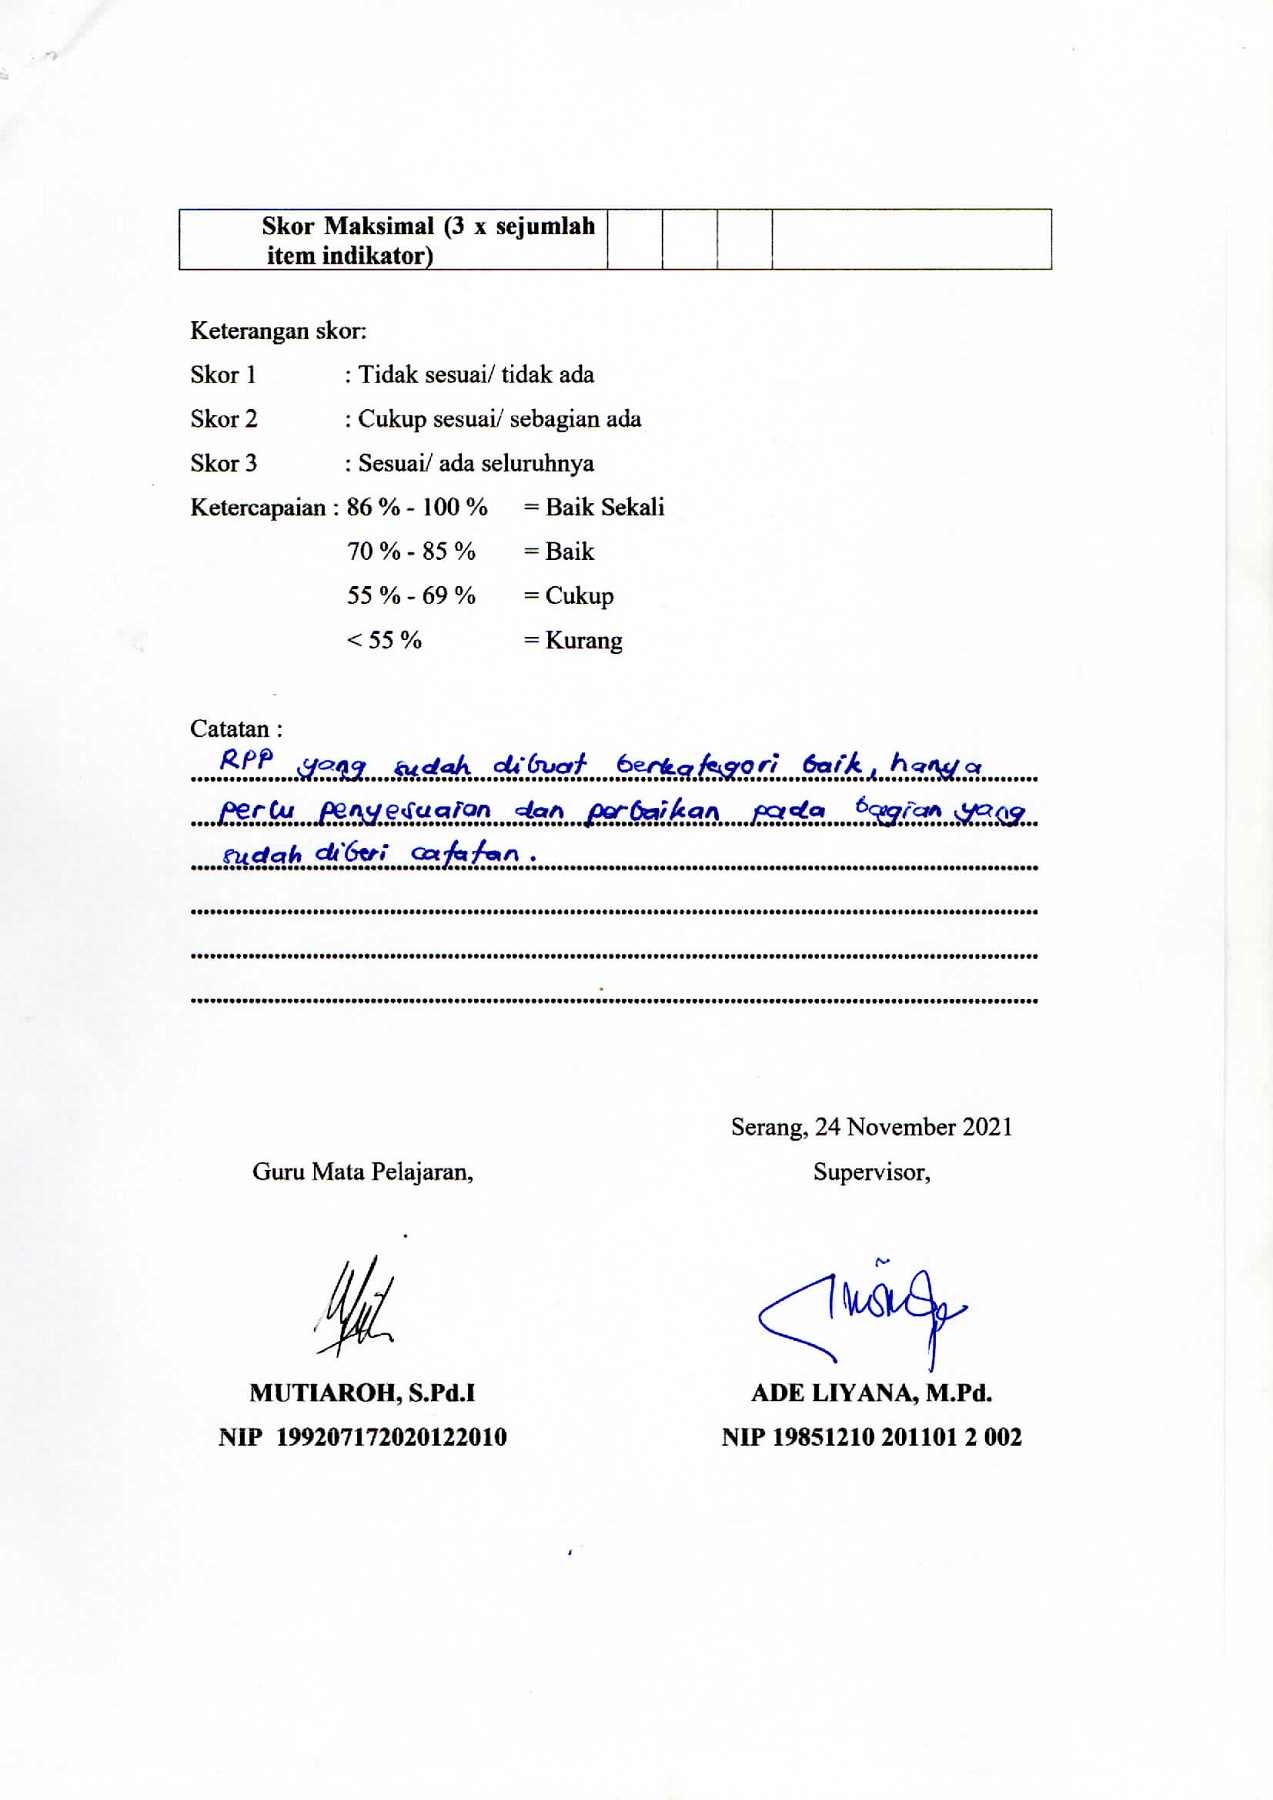 Skor Maksimal (3 x sejumlah
item indikator)
Keterangan skor:
Skor 1 : Tidak sesuai/ tidak ada
Skor 2 : Cukup sesuai/ sebagian ada
Skor 3 : Sesuai/ ada seluruhnya
Ketercapaian : 86 % - 100 % = Baik Sekali
70 % - 85 % = Baik
55 % - 69 % = Cukup
< 55 % = Kurang
Catatan :
RPP yang sudah dibuat berkategori baik, hanya
perlu penyesuaian dan perbaikan pada bagian yang
sudah diberi catatan.
Serang, 24 November 2021
Guru Mata Pelajaran, Supervisor,
MUTIAROH, S.Pd.I ADE LIYANA, M.Pd.
NIP 199207172020122010 NIP 19851210 201101 2 002